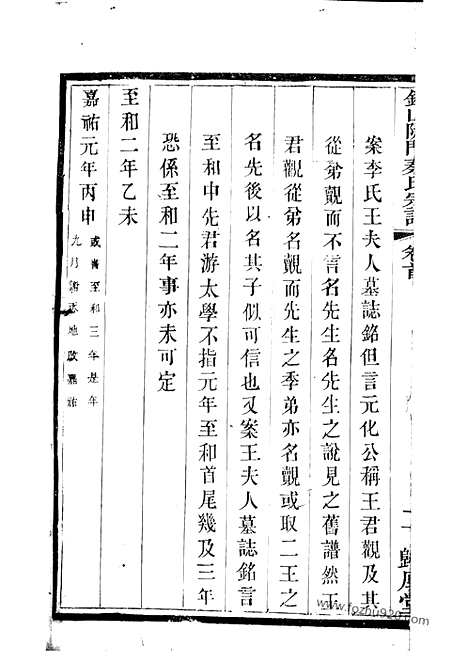 錫山
秦氏宗譜 卷首
案李氏王夫人墓誌銘但言元化公稱王君觀及其
從弟覿而不言名先生名先生之說見之舊譜然王
君觀從弟名覿而先生之季弟亦名覿或取二王之
名先後以名其子似可信也又案王夫人墓誌銘言
至和中先君游太學不指元年至和首尾幾及三年
恐係至和二年事亦未可定
至和二年乙未
嘉祐元年丙申
或書至和三年是年
九月
改嘉祐
www.fozhu920.com